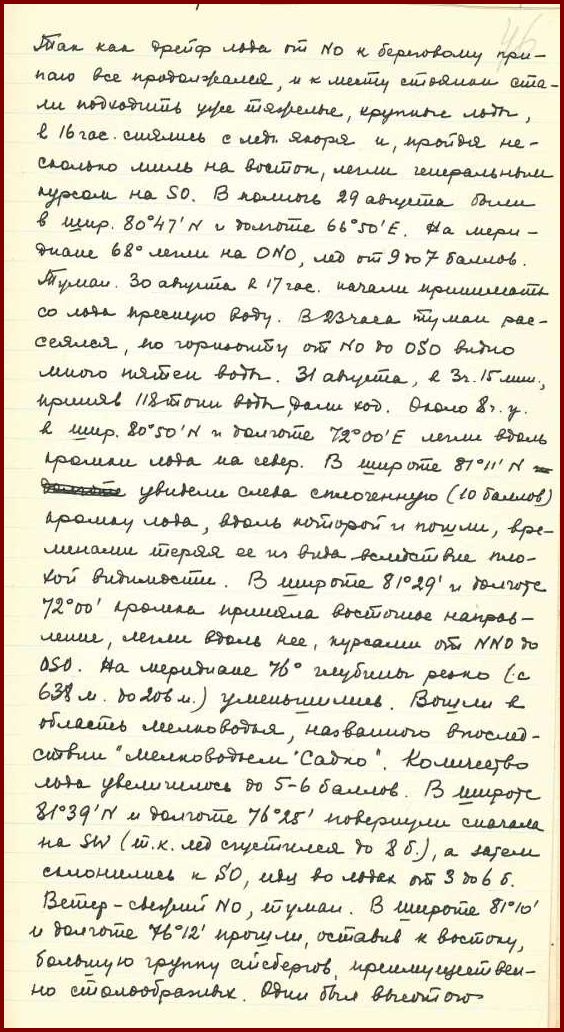 46
Так как дрейф льда от NO к береговому при-
паю все продолжался, и к месту стоянки ста-
ли подходить уже тяжелые, крупные льды,
в 16 час. снялись с лед. якоря и, пройдя не-
сколько миль на восток, легли генеральным
курсом на SO. В полночь 29 августа были
в шир. 80°47' N и долготе 66°50' E. На мери-
диане 68° легли на ONO, лед от 9 до 7 баллов.
Туман. 30 августа в 17 час. начали принимать
со льда пресную воду. В 23 часа туман рас-
сеялся, по горизонту от NO до OSO видно
много пятен воды. 31 августа, в 3 г. 15 мин.,
приняв 118 тонн воды, дали ход. Около 8 г. у.
в шир. 80°50' N и долготе 72°00' E легли вдоль
кромки льда на север. В широте 81°11' N и
долготе увидели слева сплоченную (10 баллов)
кромку льда, вдоль которой и пошли, вре-
менами теряя ее из вида вследствие пло-
хой видимости. В широте 81°29' и долготе
72°00' кромка приняла восточное направ-
ление, легли вдоль нее, курсами от NNO до
OSO. На меридиане 76° глубины резко (с
638 м. до 206 м.) уменьшились. Вошли в
область мелководья, названного впослед-
ствии "мелководьем "Садко". Количество
льда увеличилось до 5-6 баллов. В широте
81°39' N и долготе 76°25' повернули сначала
на SW (т.к. лед сгустился до 8 б.), а затем
склонились к SO, идя во льдах от 3 до 6 б.
Ветер - свежий NO, туман. В широте 81°10'
и долготе 76°12' прошли, оставив к востоку,
большую группу айсбергов, преимуществен-
но столообразных. Один был высотою